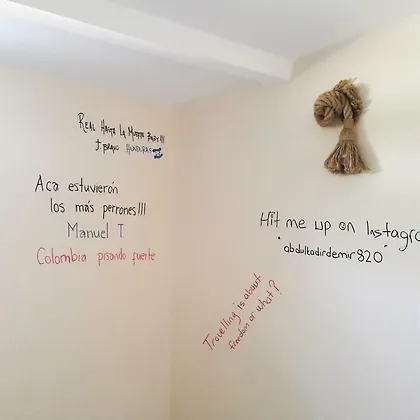 Real Hasta La Muerte Baby!!!
J. Bravo HONDURAS
Aca estuvierón
los más perrones!!!
Manuel T.
Colombia pisando fuerte
Hit me up on Instagra
"abdulkadirdemir820"
Travelling is about
freedom or what?